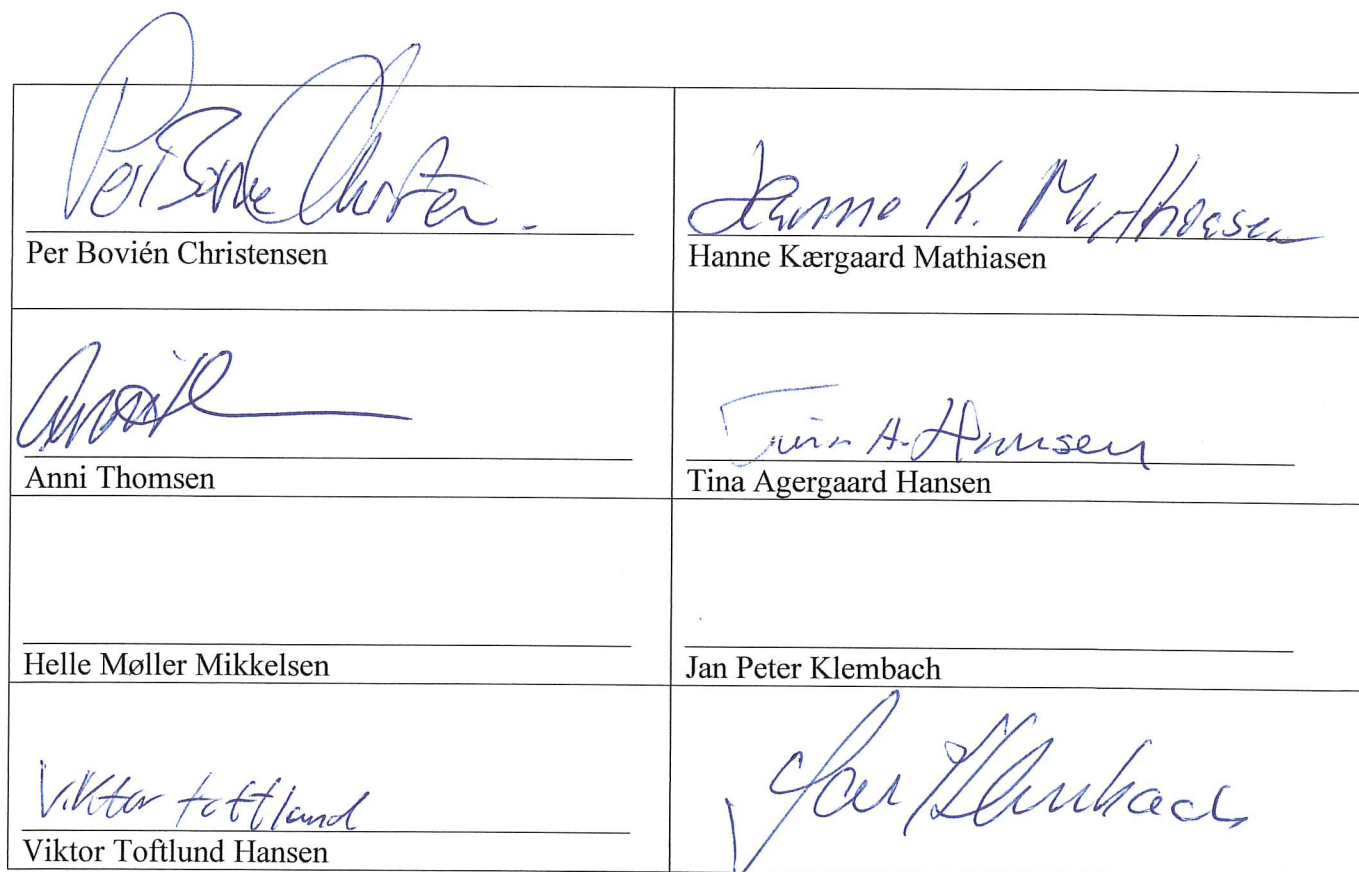 Per Bovién Christensen
Hanne K. Mathiasen
Per Bovién Christensen
Hanne Kærgaard Mathiasen
Tina A. Hansen
Anni Thomsen
Tina Agergaard Hansen
Helle Møller Mikkelsen
Jan Peter Klembach
Viktor Toftlund
Jan Klembach
Viktor Toftlund Hansen